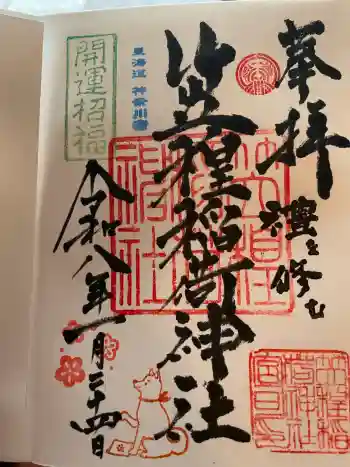 奉拝
禮を修む
笠䅣稲荷神社
東海道 神奈川宿
開運招福
令和八年一月二十四日
笠䅣稲荷神社